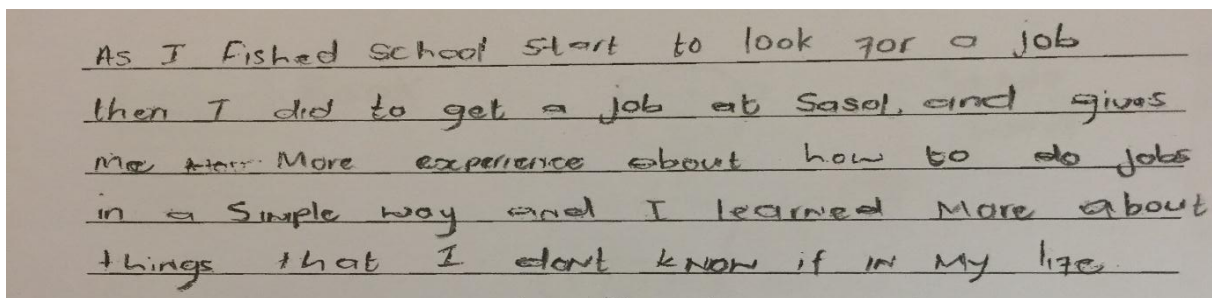 As I Fished school start to look for a job
then I did to get a job at Sasol. and gives
me More experience about how to do jobs
in a Simple way and I learned More about
things that I dont know if in My life